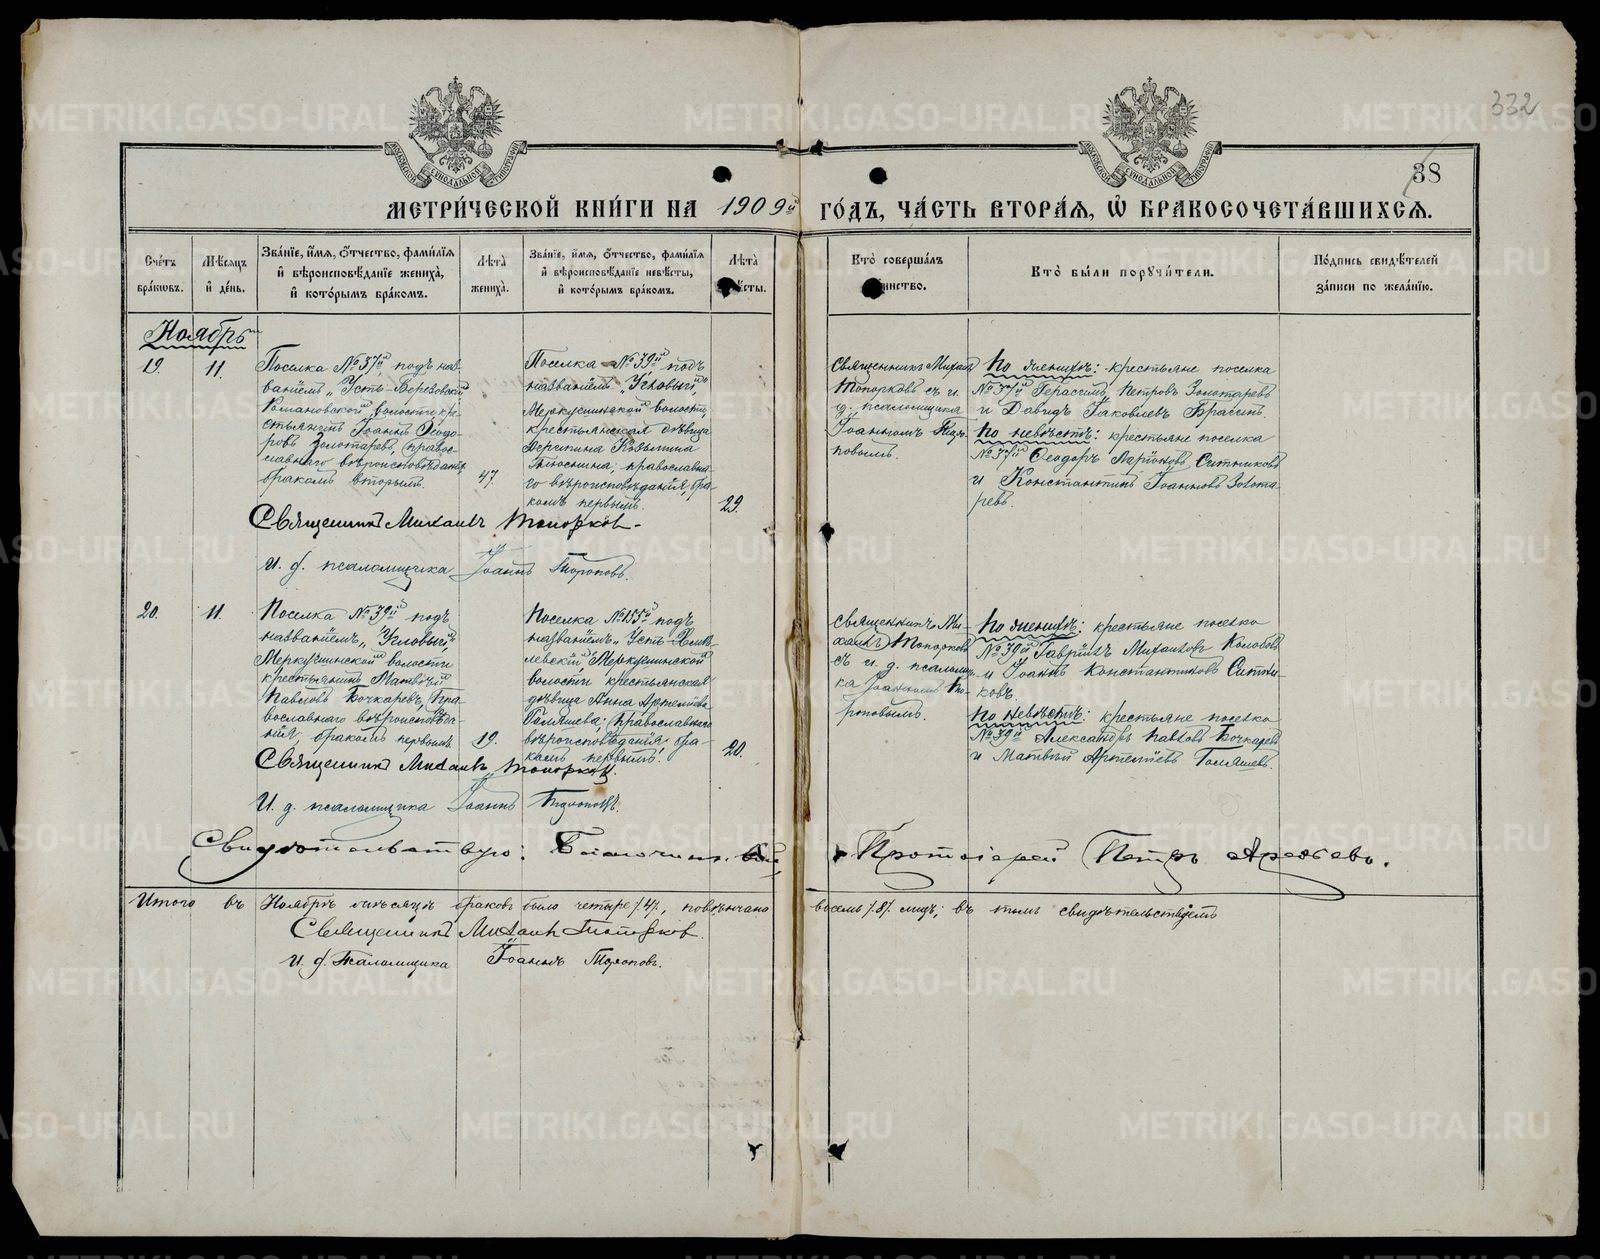 332
38
МОСКОВСКОЙ СѴНОДАЛЬНОЙ ТИПОГРАФІИ
МОСКОВСКОЙ СѴНОДАЛЬНОЙ ТИПОГРАФІИ
МЕТРИ́ЧЕСКОЙ КНИ́ГИ НА 1909й ГО́ДЪ, ЧА́СТЬ ВТОРА́Я, Ѽ БРАКОСОЧЕТА́ВШИХСЯ.
Сче́тъ бра́ковъ.
Мѣ́сяцъ и҆ де́нь.
Зва́нїе, и҆́мя, ѻ҆́тчество, фами́лїя и҆ вѣроисповѣ́данїе жениха̀, и҆ кото́рымъ бра́комъ.
Лѣ́та жениха̀.
Зва́нїе, и҆́мя, ѻ҆́тчество, фами́лїя и҆ вѣроисповѣ́данїе невѣ́сты, и҆ кото́рымъ бра́комъ.
Лѣ́та
Кто̀ соверша́лъ
Кто̀ бы́ли порꙋчи́тели.
По́дпись свидѣ́телей за́писи по жела́нїю.
Ноябрь
19.
11.
Поселка №37й подъ наз-
ваніемъ „Усть-Березовскій
Романовской волости кре-
стьянинъ Іоаннъ Ѳеодо-
ровъ Золотаревъ, правос-
славнаго вѣроисповѣданія
бракомъ вторымъ.
47
Поселка №39й подъ
названіемъ „Угловый“,
Меркушинской волости,
крестьянская дѣвица
Козьмина
православна-
го вѣроисповѣданія, бра-
комъ первымъ.
29.
Священникъ Михаилъ
Топорковъ съ и.
д. псаломщика
Іоанномъ
По женихѣ: крестьяне поселка
№37й Герасимъ Петровъ Золотаревъ
и Давидъ Іаковлевъ
По невѣстѣ: крестьяне поселка
№37й Ѳеодоръ Ларіоновъ Ситниковъ
и Константинъ Іоанновъ Золота-
ревъ.
Священникъ Михаилъ Топорковъ.
И. д. псаломщика Іоаннъ Тороповъ.
20.
11.
Поселка №39й подъ
названіемъ „Угловый“,
Меркушинской волости
крестьянинъ Матвѣй
Павловъ Бочкаревъ, Пра-
вославнаго вѣроисповѣда-
нія, бракомъ первымъ
19.
Поселка №155й подъ
названіемъ „Усть-
Меркушинской
волости крестьянская
дѣвица Анна Артеміева
Голяшева, православнаго
вѣроисповѣданія, бра-
комъ первымъ.
20.
Священникъ Ми-
хаилъ Топорковъ
съ и. д. псаломщи-
ка Іоанномъ То-
роповымъ.
По женихѣ: крестьяне поселка
№39й Гавріилъ Михаиловъ Колобовъ
и Іоаннъ Константиновъ Ситни-
ковъ.
По невѣстѣ: крестьяне поселка
№39й Александръ Павловъ Бочкаревъ
и Матвѣй Артеміевъ Голяшевъ.
Священникъ Михаилъ Топорковъ.
И. д. псаломщика Іоаннъ Тороповъ.
Свидѣтельствую: Благочинный Протоіерей Петръ
Итого въ Ноябрѣ мѣсяцѣ браковъ было четыре /4/, повѣнчано восемь /8/ лицъ; въ томъ свидѣтельствуемъ
Священникъ Михаилъ Топорковъ.
И. д. Псаломщика Іоаннъ Тороповъ.
METRIKI.GASO-URAL.RU